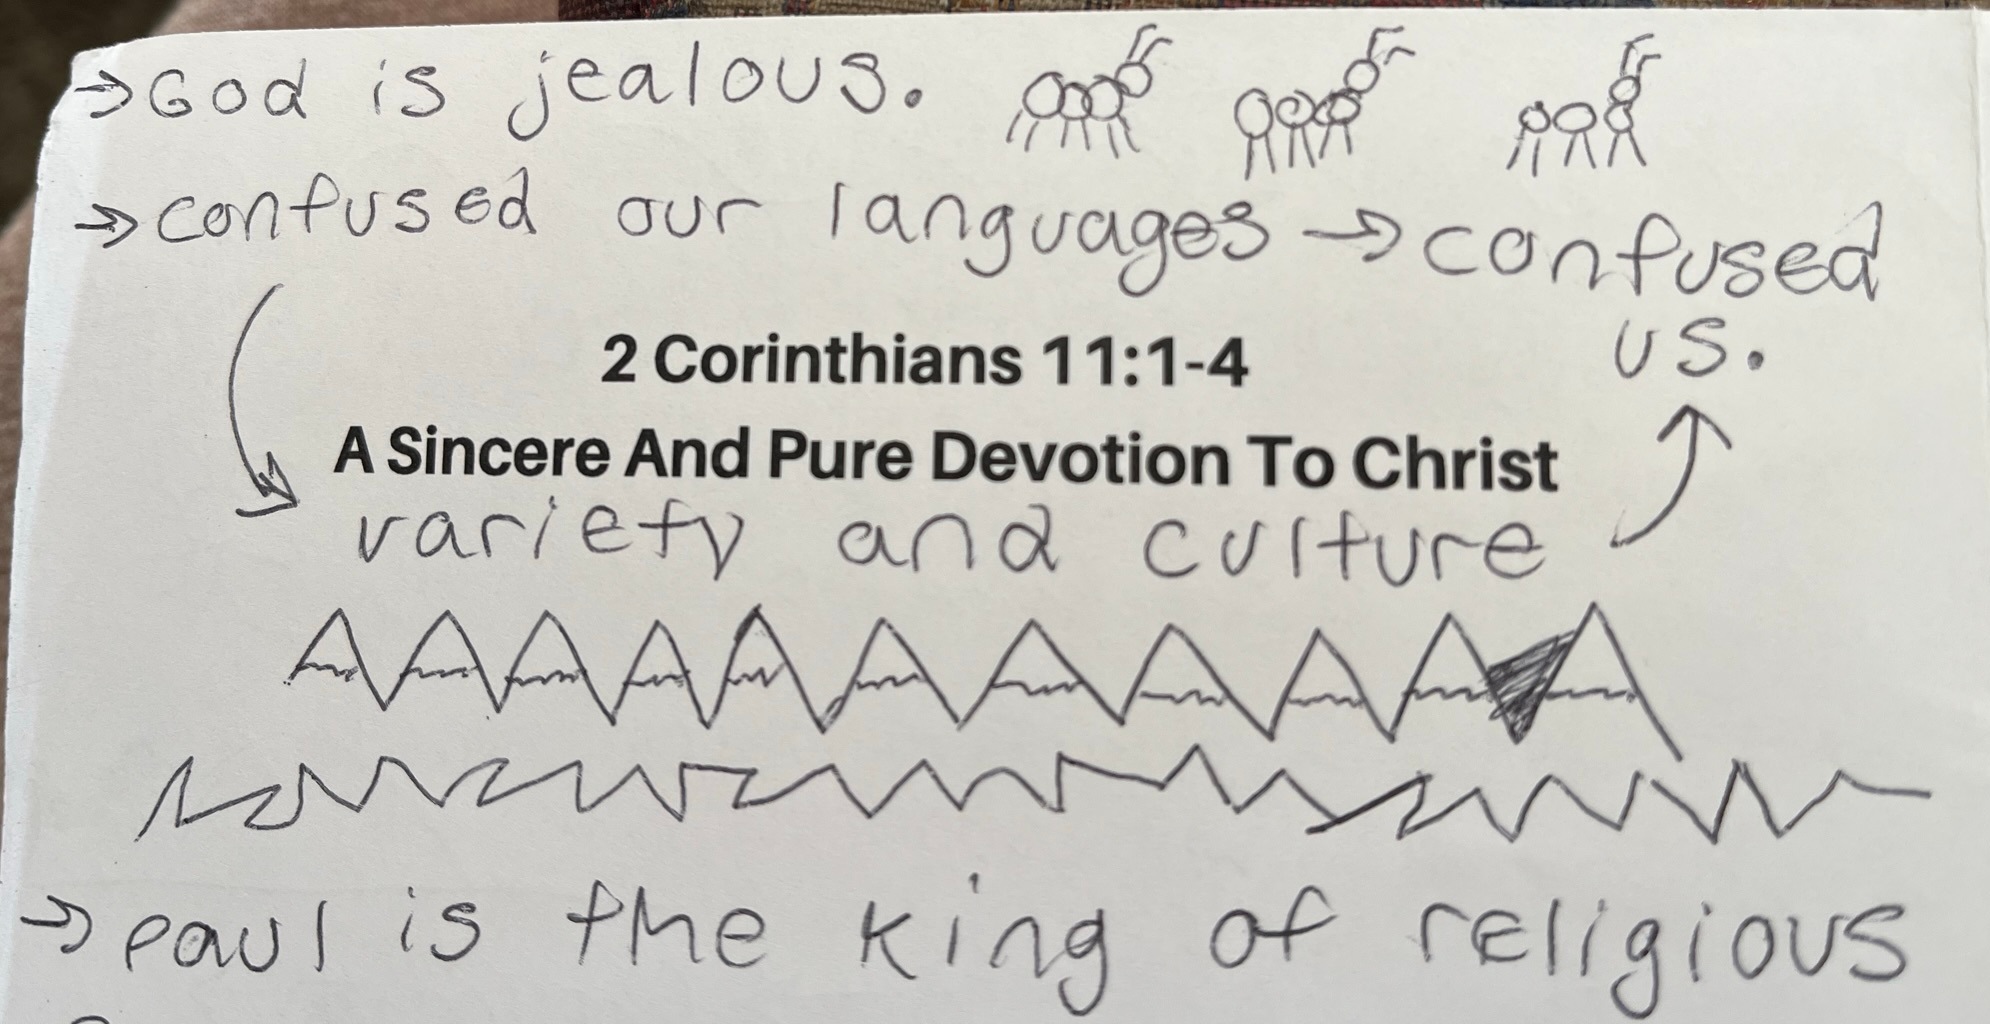 →God is jealous.
→confused our languages → confused
us.
2 Corinthians 11:1-4
A Sincere And Pure Devotion To Christ
variety and culture
→ paul is the king of religious